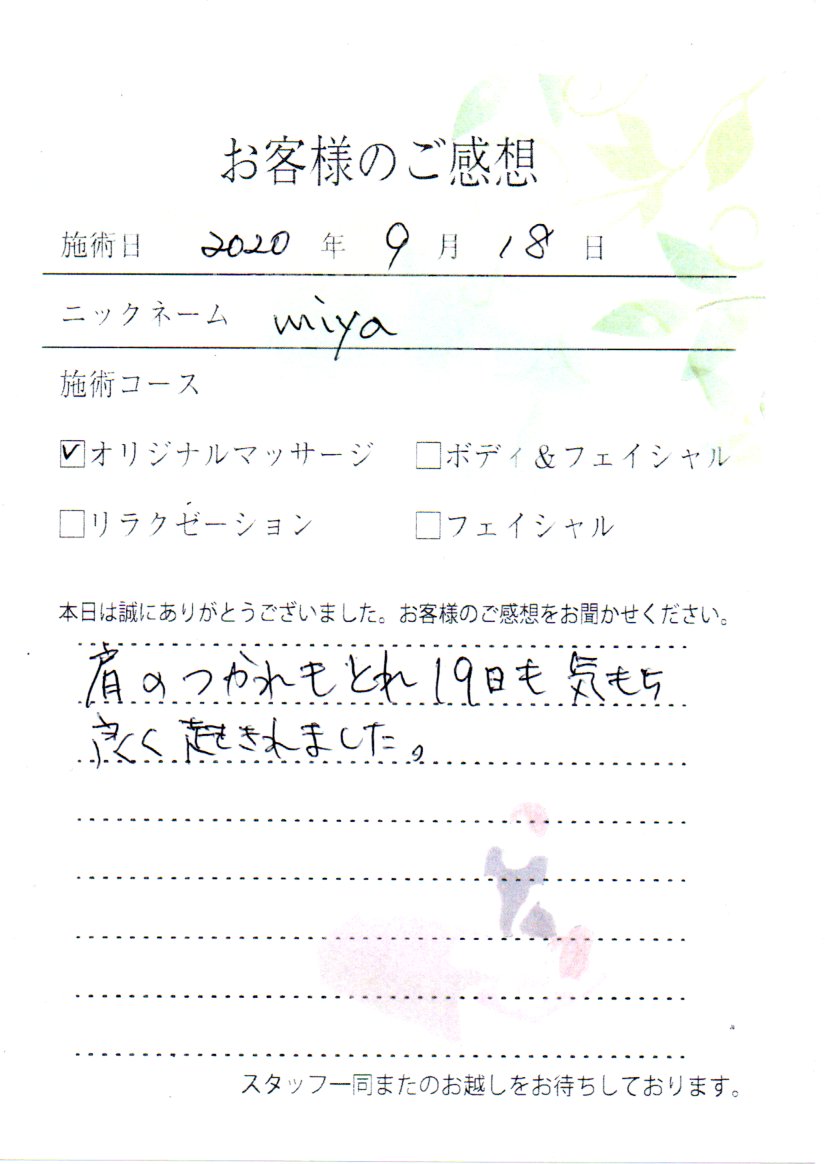 お客様のご感想
施術日 2020 年 9 月 18 日
ニックネーム miya
施術コース
☑オリジナルマッサージ □ボディ＆フェイシャル
□リラクゼーション □フェイシャル
本日は誠にありがとうございました。お客様のご感想をお聞かせください。
肩のつかれもとれ19日も気もち
良く起きれました。
スタッフ一同またのお越しをお待ちしております。